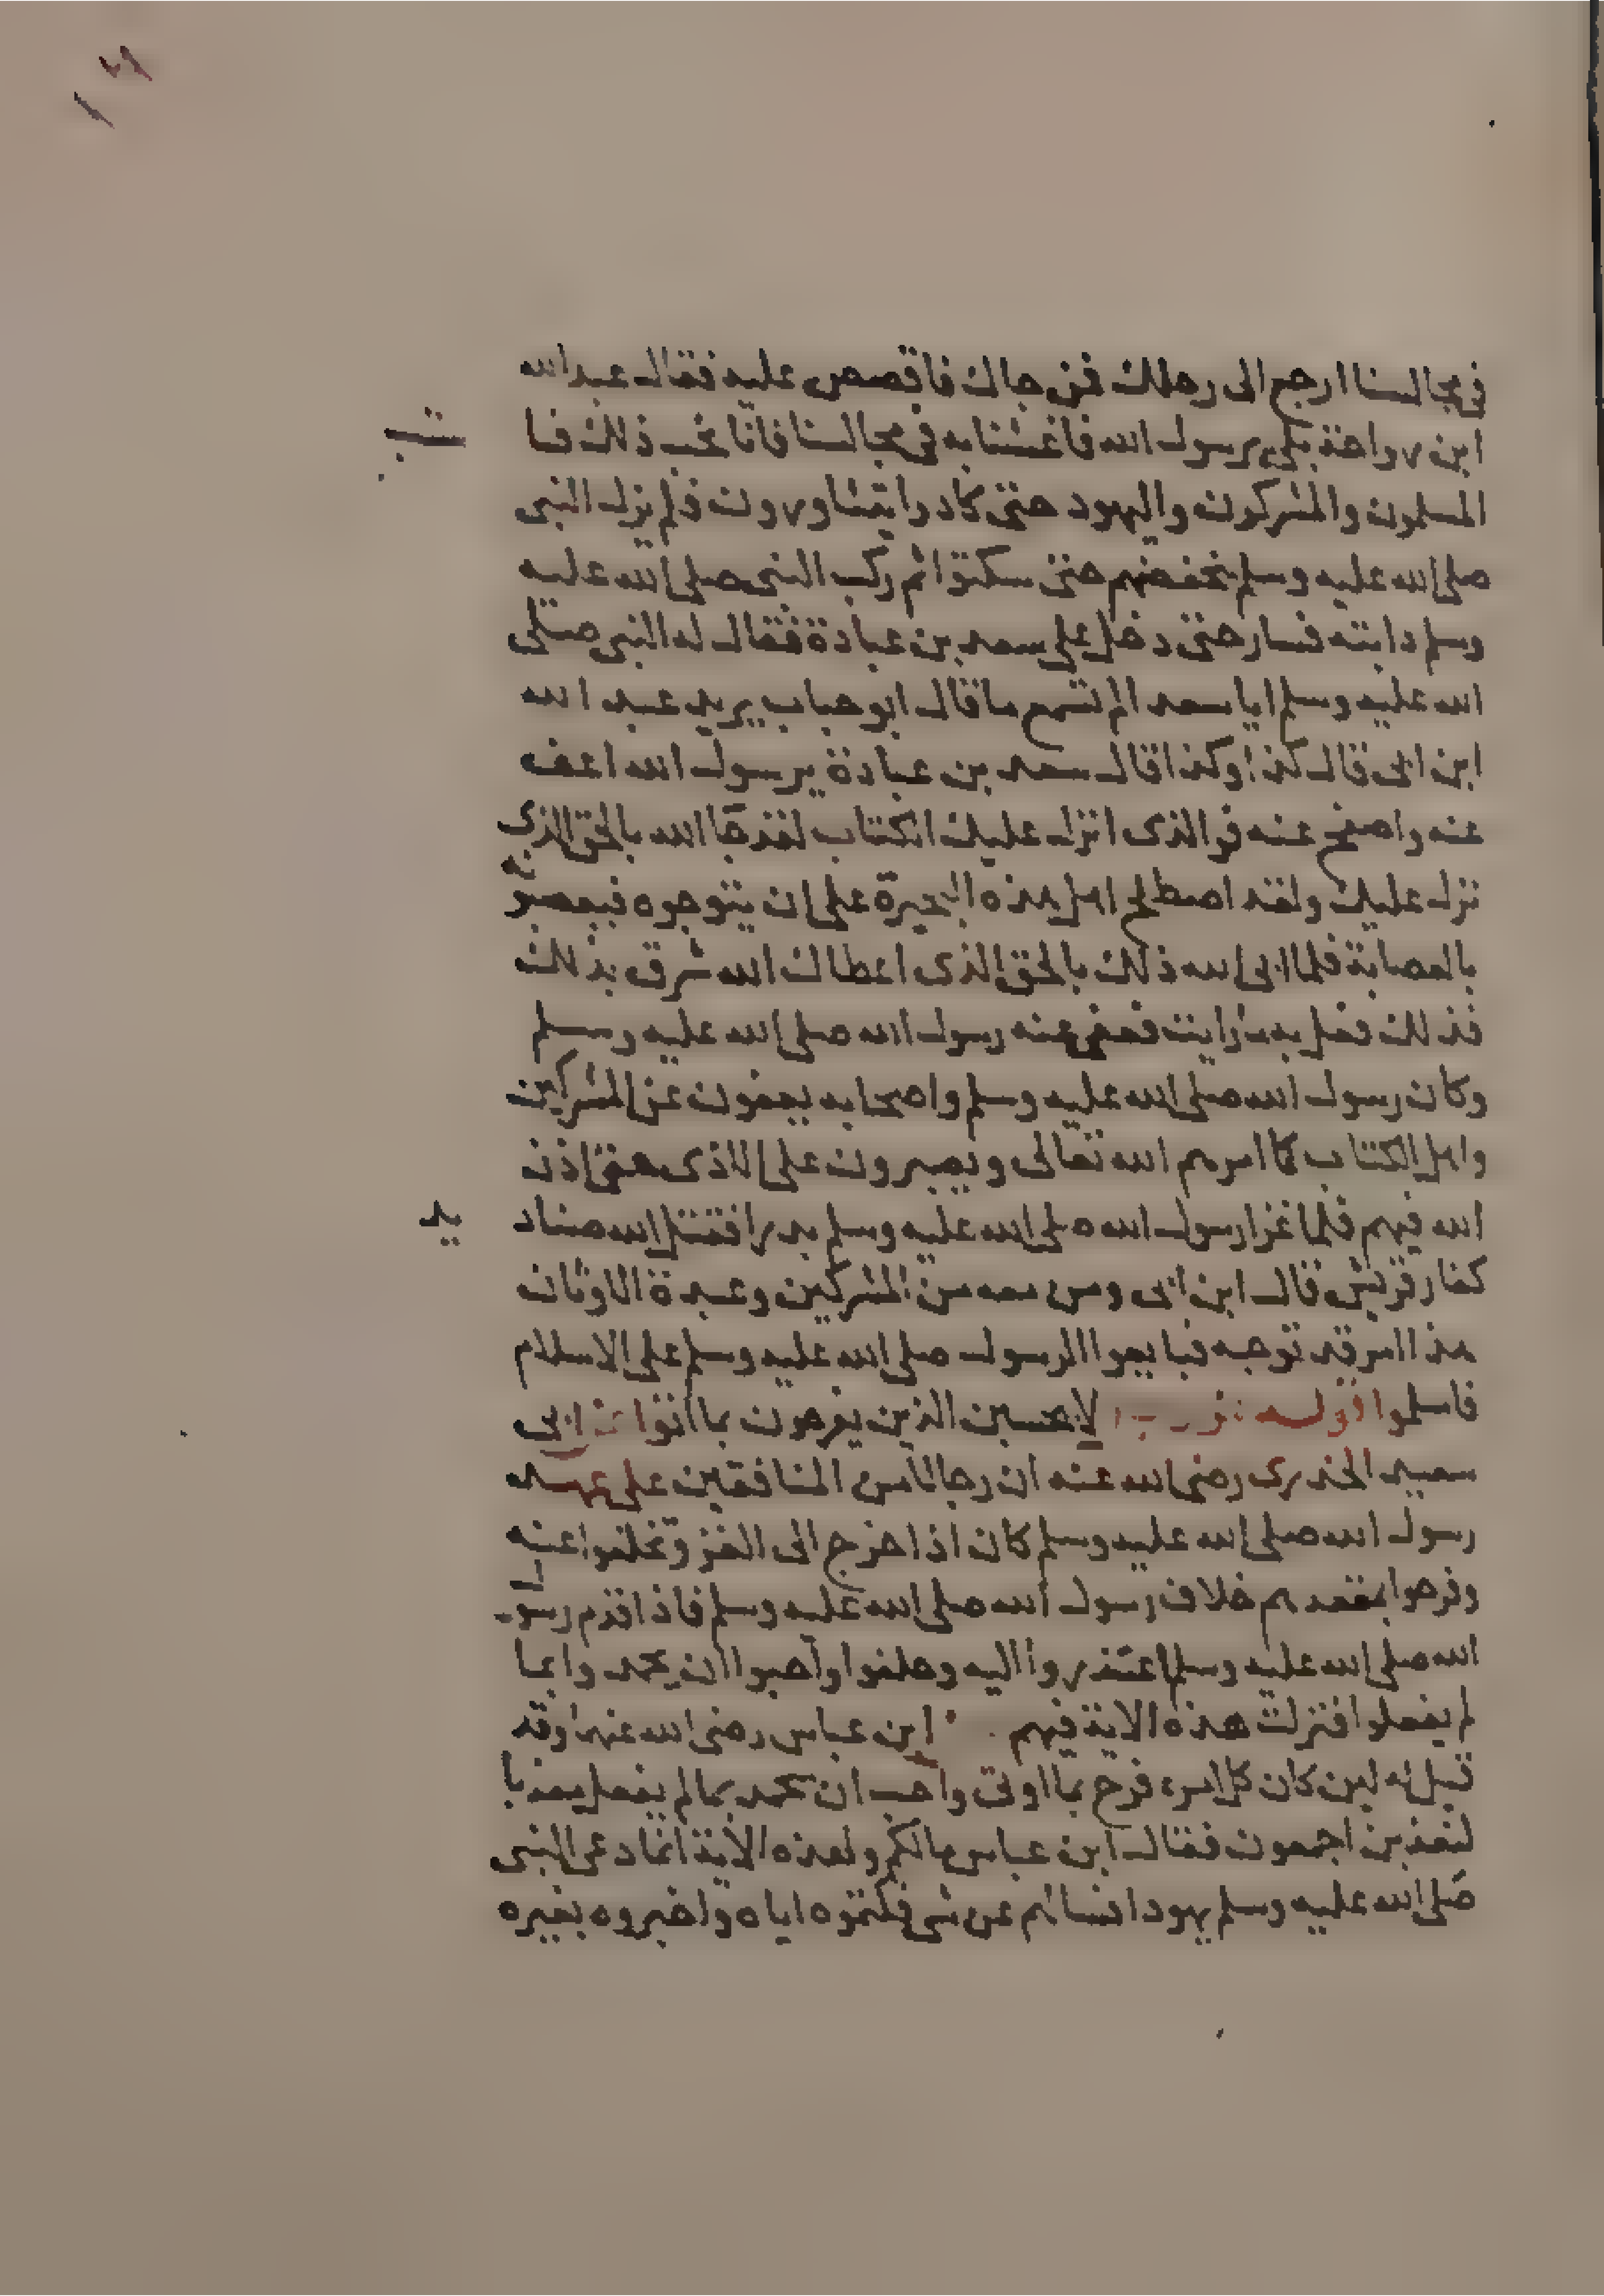 في مجالسنا ارجع الى رحلك فمن جاك فاقصص عليه فقال عبد الله
ابن رواحة بلى يرسول الله فاغشنا به في مجالسنا فانا نحب ذلك فا
ستب
المسلمون والمشركون واليهود حتى كادوا يتشاورون فلم يزل النبى
صلى الله عليه وسلم يخفضهم حتى سكتوا ثم ركب النبى صلى الله عليه
وسلم دابته فسار حتى دخل على سعد بن عبادة فقال له النبى صلى
الله عليه وسلم ايا سعد الم تسمع ما قال ابو حباب يريد عبد الله
ابن ابى قال كذا وكذا قال سعد بن عبادة يرسول الله اعف
عنه واصفح عنه فوالذى انزل عليك الكتاب لقد جا الله بالحق الذى
نزل عليك ولقد اصطلح اهل هذه البحيرة على ان يتوجوه فيعصبونه
بالعصابة فلما ابى الله ذلك بالحق الذى اعطاك الله شرق بذلك
فذلك فعل به ما رايت فعفى عنه رسول الله صلى الله عليه وسلم
وكان رسول الله صلى الله عليه وسلم واصحابه يعفون عن المشركين
واهل الكتاب كما امرهم الله تعالى ويصبرون على الاذى حتى اذن
الله فيهم فلما غزا رسول الله صلى الله عليه وسلم بدرا فقتل الله صناد
يد
كفار قريش قال ابن ابى ومن معه من المشركين وعبدة الاوثان
هذا امر قد توجه فبايعوا الرسول صلى الله عليه وسلم على الاسلام
فاسلموا قوله لا تحسبن الذين يفرحون بما اتوا عن ابى
سعيد الخدرى رضى الله عنه ان رجالا من المنافقين على عهد
رسول الله صلى الله عليه وسلم كان اذا خرج الى الغزو تخلفوا عنه
وفرحوا بمقعدهم خلاف رسول الله صلى الله عليه وسلم فاذا قدم رسول
الله صلى الله عليه وسلم اعتذروا اليه وحلفوا واحبوا ان يحمدوا بما
لم يفعلوا فنزلت هذه الاية فيهم ابن عباس رضى الله عنهما وقد
قيل له لين كان كل امرء فرح بما اوتى واحب ان يحمد بما لم يفعل معذبا
لنعذبن اجمعون فقال ابن عباس مالكم ولهذه الاية انما دعى النبى
صلى الله عليه وسلم يهودا فسالهم عن شى فكتموه اياه واخبروه بغيره